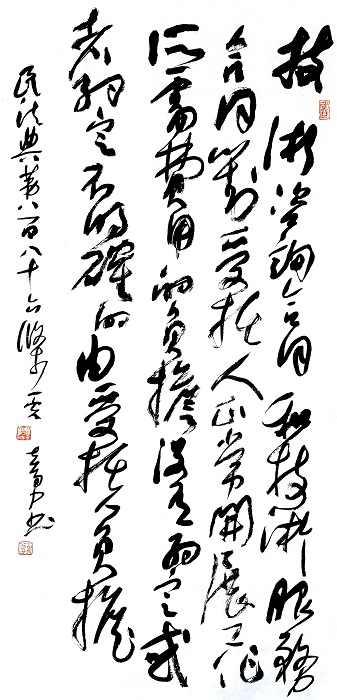 技術咨詢合同和技術服務
合同對受托人正常開展工作
所需費用的負擔沒有約定或
者約定不明確的由受托人負擔
民法典第八百八十六條
書